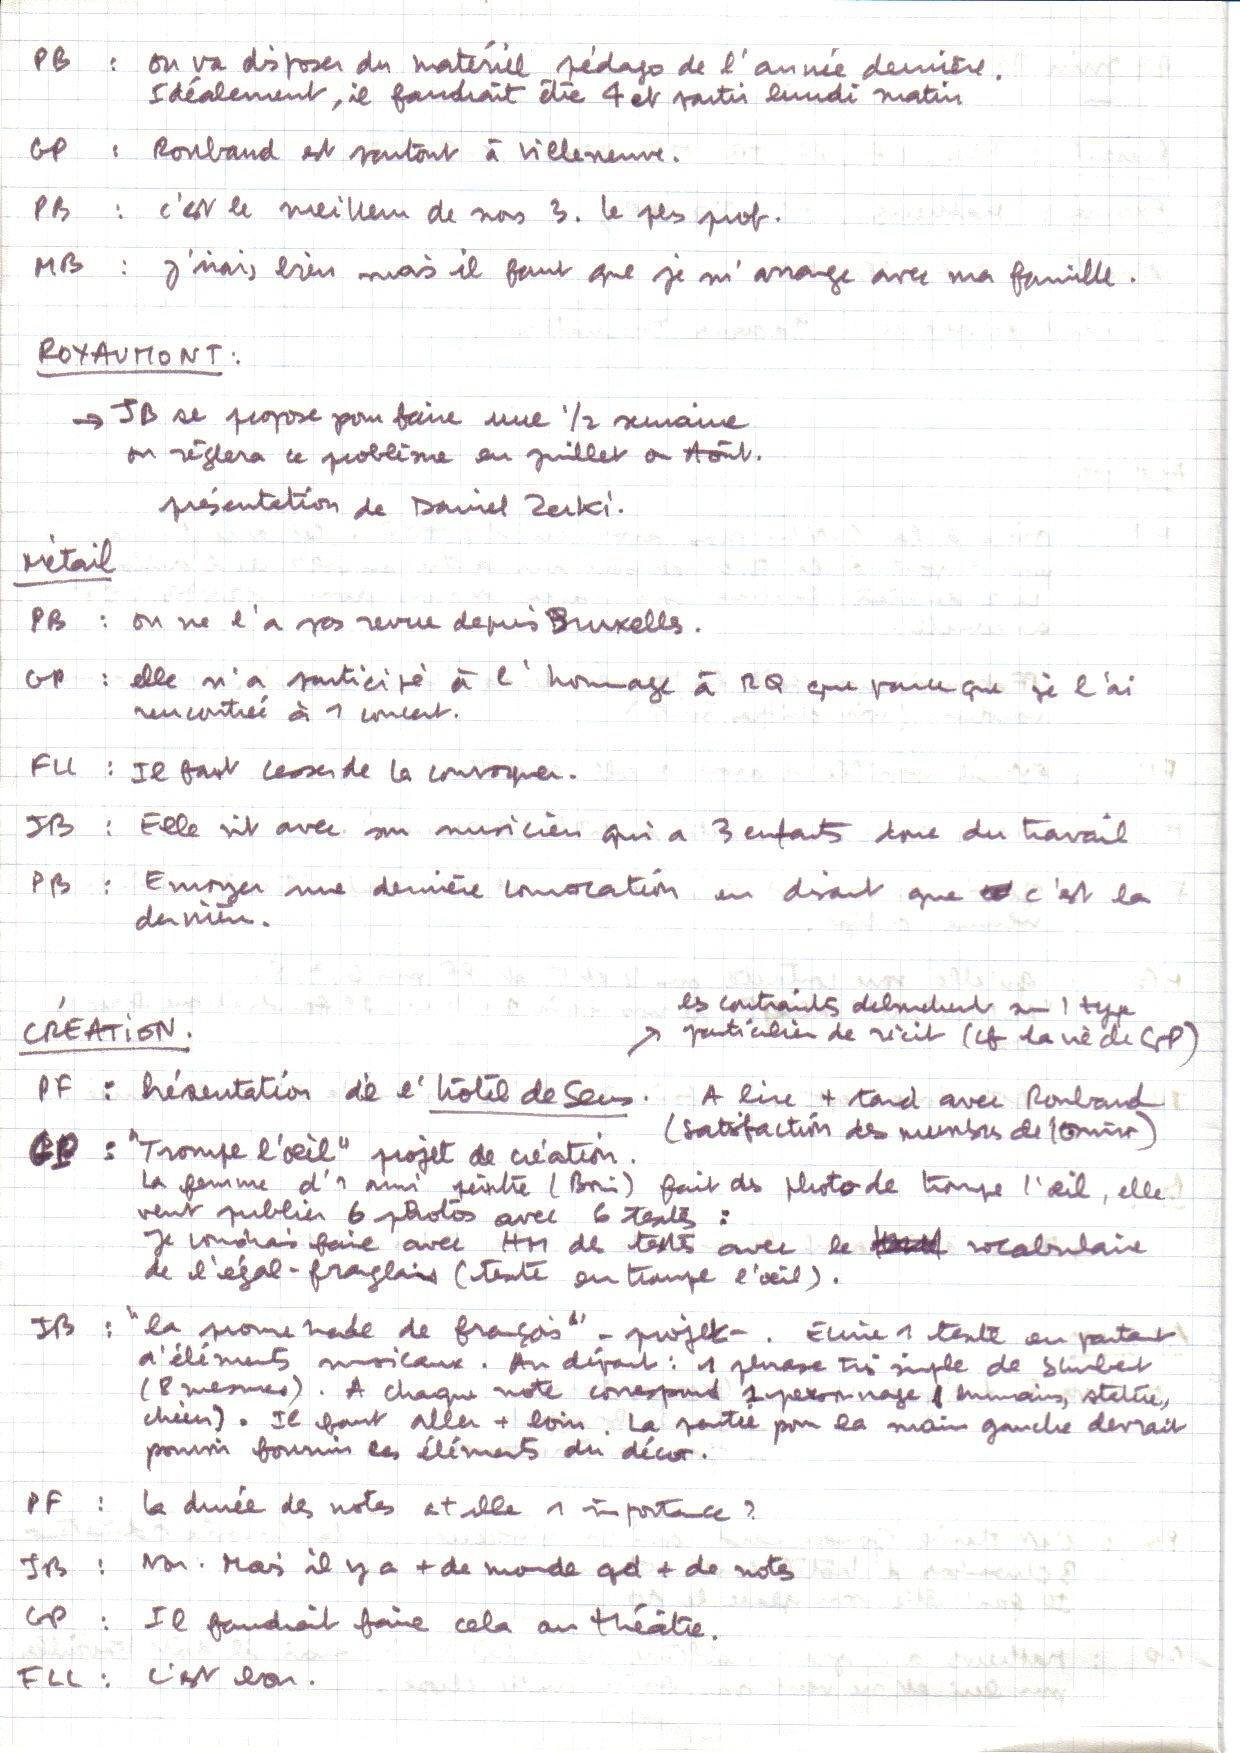 PB : on va disposer du matériel pédago de l'année dernière.
Idéalement, il faudrait être 4 et partir lundi matin
GP : Roubaud est partout à Villeneuve.
PB : c'est le meilleur de nos 3. le plus prof.
MB : j'irais bien mais il faut que je m'arrange avec ma famille.
ROYAUMONT :
→ JB se propose pour faire une 1/2 semaine
on règlera ce problème en juillet ou Août.
présentation de Daniel Zerki.
Métail
PB : on ne l'a pas revue depuis Bruxelles.
GP : elle n'a participé à l'hommage à RQ que parce que je l'ai
rencontrée à 1 concert.
FLL : Il faut cesser de la convoquer.
JB : Elle vit avec un musicien qui a 3 enfants donc du travail
PB : Envoyer une dernière convocation en disant que c'est la
dernière.
CRÉATION.
les contraintes débouchent sur 1 type
↗ particulier de récit (cf la vie de GP)
PF : Présentation de l'hôtel de Sens. A lire + tard avec Roubaud
(satisfaction des membres de l'Oulipo)
GP : "Trompe l'œil" projet de création.
La femme d'1 ami peintre (Boris) fait des photo de trompe l'œil, elle
veut publier 6 photos avec 6 textes :
Je voudrais faire avec HM des textes avec le vocabulaire
de l'égal-franglais (texte en trompe l'œil).
JB : "la promenade de françois" - projet - . Écrire 1 texte en partant
d'éléments musicaux. Au départ : 1 phrase très simple de Shubet
(8 mesures). A chaque note correspond 1 personnage (humains, statue,
chien). Il faut aller + loin. La partie pour la main gauche devrait
pouvoir fournir les éléments du décor.
PF : la durée des notes a t elle 1 importance ?
JB : Non. Mais il y a + de monde qd + de notes
GP : Il faudrait faire cela au théâtre.
FLL : C'est bon.